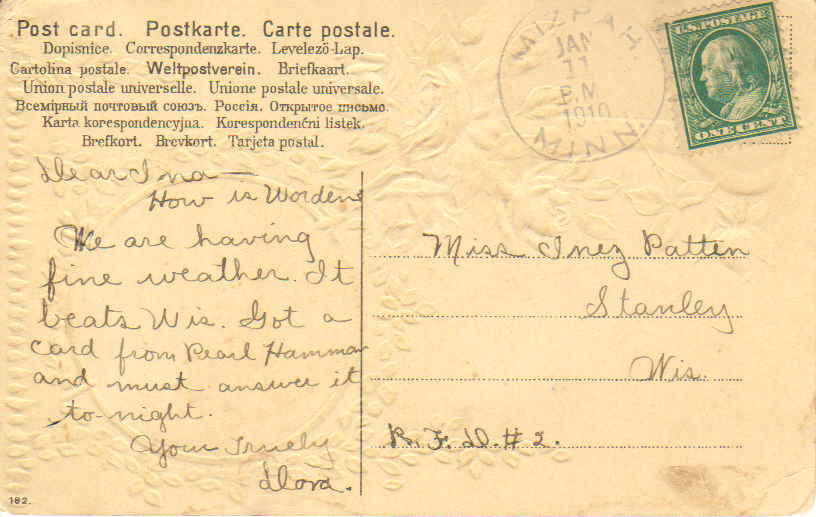 Post card. Postkarte. Carte postale.
Dopisnice. Correspondenzkarte. Levelező-Lap.
Cartolina postale. Weltpostverein. Briefkaart.
Union postale universelle. Unione postale universale.
Всемірный почтовый союзъ. Россія. Открытое письмо.
Karta korespondencyjna. Korespondenční listek.
Brefkort. Brevkort. Tarjeta postal.
MIZPAH
JAN
11
P.M.
1910
MINN.
U.S. POSTAGE
ONE CENT
Dear Ina—
How is Worden
We are having
fine weather. It
beats Wis. Got a
card from Pearl Hammar
and must answer it
to-night.
Your Truely
Dora.
Miss Inez Patten
Stanley
Wis.
R. F. D. # 2.
182.